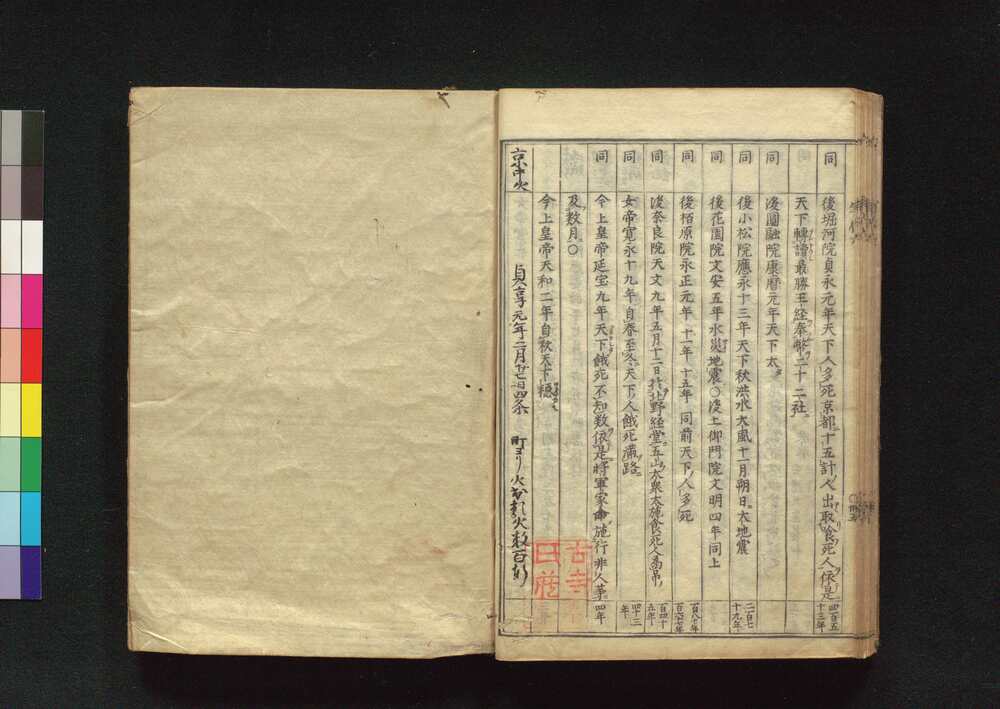 同 後堀河院貞永元年天下人多死京都ニ十五計人出取喰死人依是 四百五十三年
天下轉讀最勝王経奉幣二十二社
同 後圓融院康暦元年天下大
同 後小松院應永十三年天下秋洪水大風十一月朔日大地震 二百七十九年
同 後花園院文安五年水災地震○後土御門院文明四年同上
同 後栢原院永正元年十一年十五年同前天下人多死 百八十年百六七年
同 後奈良院天文九年五月十二日於北野経堂五山大衆大施食死人為吊 百四十五年
同 女帝寛永十九年自春至冬天下人餓死満路 四十三年
同 今上皇帝延宝九年天下餓死不知数依是将軍家命施行非人等 四年
及数月○
今上皇帝天和二年自秋天下穏
京中火 貞享元年二月廿一日四条 町ヨリ火出 火数百